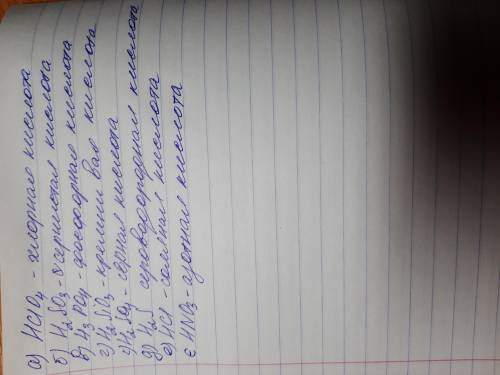 а) HClO4 - хлорная кислота
б) H2SO3 - сернистая кислота
в) H3PO4 - фосфорная кислота
г) H2SiO3 - кремниевая кислота
г) H2SO4 - серная кислота
д) H2S сероводородная кислота
е) HCl - соляная кислота
є HNO3 - азотная кислота